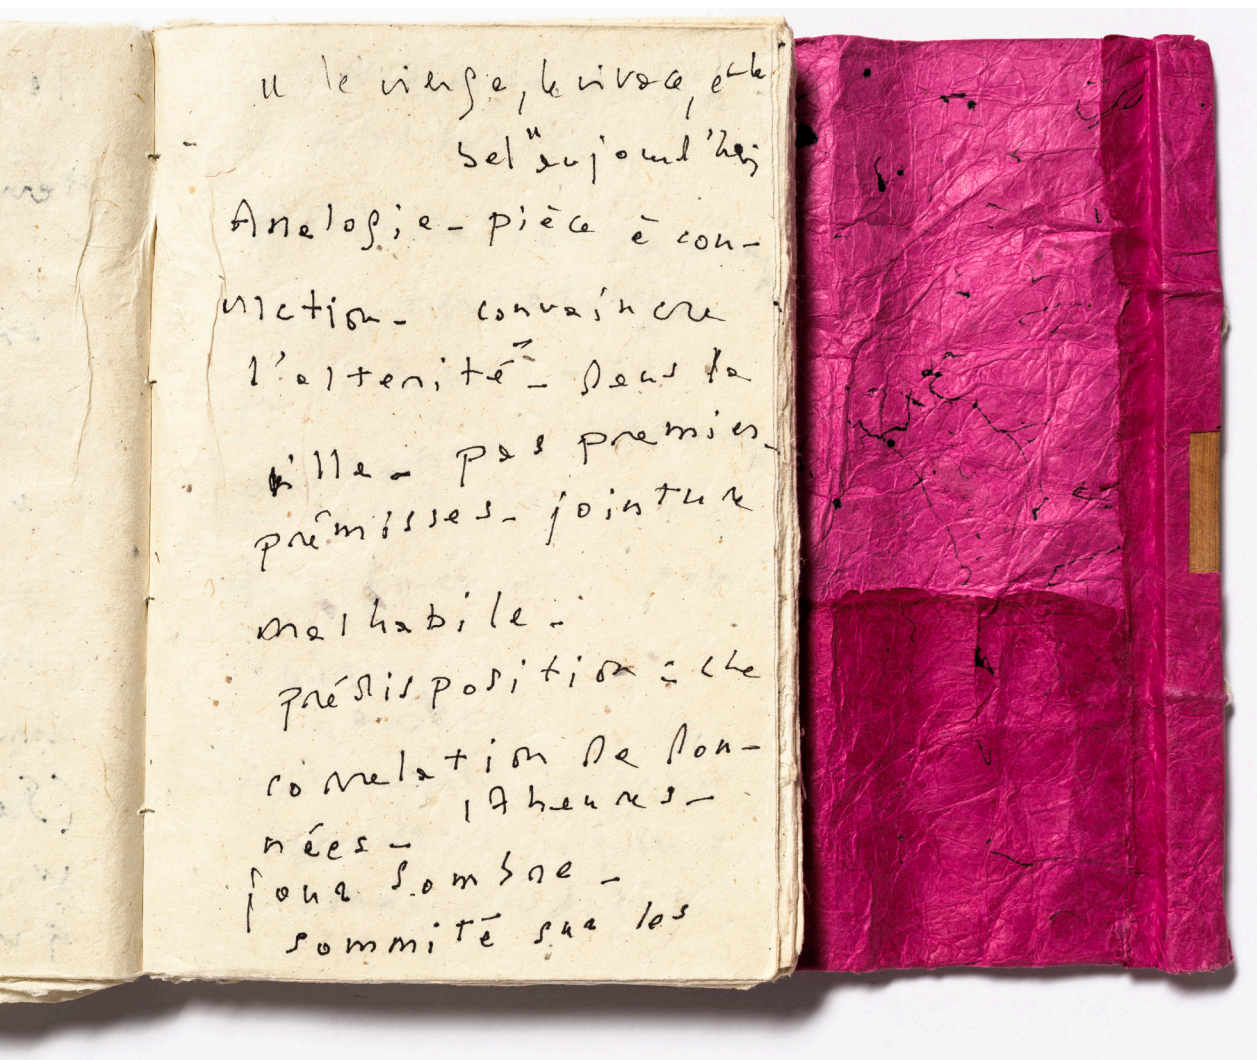 " le vierge, le vivace, et le
bel aujourd'hui"
Analogie - pièce à con-
viction - convaincre
l'altérité - dans la
ville - pas premier -
prémisses - jointure
malhabile -
prédisposition à che
corrélation de don-
14 heures -
nées -
jour sombre -
sommité sur les